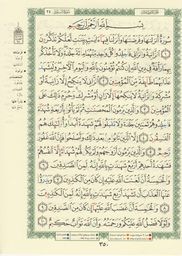 بِسْمِ اللَّهِ الرَّحْمَٰنِ الرَّحِيمِ
سُورَةٌ أَنزَلْنَاهَا وَفَرَضْنَاهَا وَأَنزَلْنَا فِيهَا آيَاتٍ بَيِّنَاتٍ لَّعَلَّكُمْ تَذَكَّرُونَ
۝١ الزَّانِيَةُ وَالزَّانِي فَاجْلِدُوا كُلَّ وَاحِدٍ مِّنْهُمَا مِائَةَ جَلْدَةٍ وَلَا تَأْخُذْكُم
بِهِمَا رَأْفَةٌ فِي دِينِ اللَّهِ إِن كُنتُمْ تُؤْمِنُونَ بِاللَّهِ وَالْيَوْمِ الْآخِرِ وَلْيَشْهَدْ
عَذَابَهُمَا طَائِفَةٌ مِّنَ الْمُؤْمِنِينَ ۝٢ الزَّانِي لَا يَنكِحُ إِلَّا زَانِيَةً أَوْ
مُشْرِكَةً وَالزَّانِيَةُ لَا يَنكِحُهَا إِلَّا زَانٍ أَوْ مُشْرِكٌ وَحُرِّمَ ذَٰلِكَ عَلَى
الْمُؤْمِنِينَ ۝٣ وَالَّذِينَ يَرْمُونَ الْمُحْصَنَاتِ ثُمَّ لَمْ يَأْتُوا بِأَرْبَعَةِ شُهَدَاءَ
فَاجْلِدُوهُمْ ثَمَانِينَ جَلْدَةً وَلَا تَقْبَلُوا لَهُمْ شَهَادَةً أَبَدًا وَأُولَٰئِكَ هُمُ
الْفَاسِقُونَ ۝٤ إِلَّا الَّذِينَ تَابُوا مِن بَعْدِ ذَٰلِكَ وَأَصْلَحُوا فَإِنَّ اللَّهَ غَفُورٌ
رَّحِيمٌ ۝٥ وَالَّذِينَ يَرْمُونَ أَزْوَاجَهُمْ وَلَمْ يَكُن لَّهُمْ شُهَدَاءُ إِلَّا أَنفُسُهُمْ
فَشَهَادَةُ أَحَدِهِمْ أَرْبَعُ شَهَادَاتٍ بِاللَّهِ إِنَّهُ لَمِنَ الصَّادِقِينَ ۝٦
وَالْخَامِسَةُ أَنَّ لَعْنَتَ اللَّهِ عَلَيْهِ إِن كَانَ مِنَ الْكَاذِبِينَ ۝٧ وَيَدْرَأُ
عَنْهَا الْعَذَابَ أَن تَشْهَدَ أَرْبَعَ شَهَادَاتٍ بِاللَّهِ إِنَّهُ لَمِنَ الْكَاذِبِينَ ۝٨
وَالْخَامِسَةَ أَنَّ غَضَبَ اللَّهِ عَلَيْهَا إِن كَانَ مِنَ الصَّادِقِينَ ۝٩
وَلَوْلَا فَضْلُ اللَّهِ عَلَيْكُمْ وَرَحْمَتُهُ وَأَنَّ اللَّهَ تَوَّابٌ حَكِيمٌ ۝١٠
٣٥٠